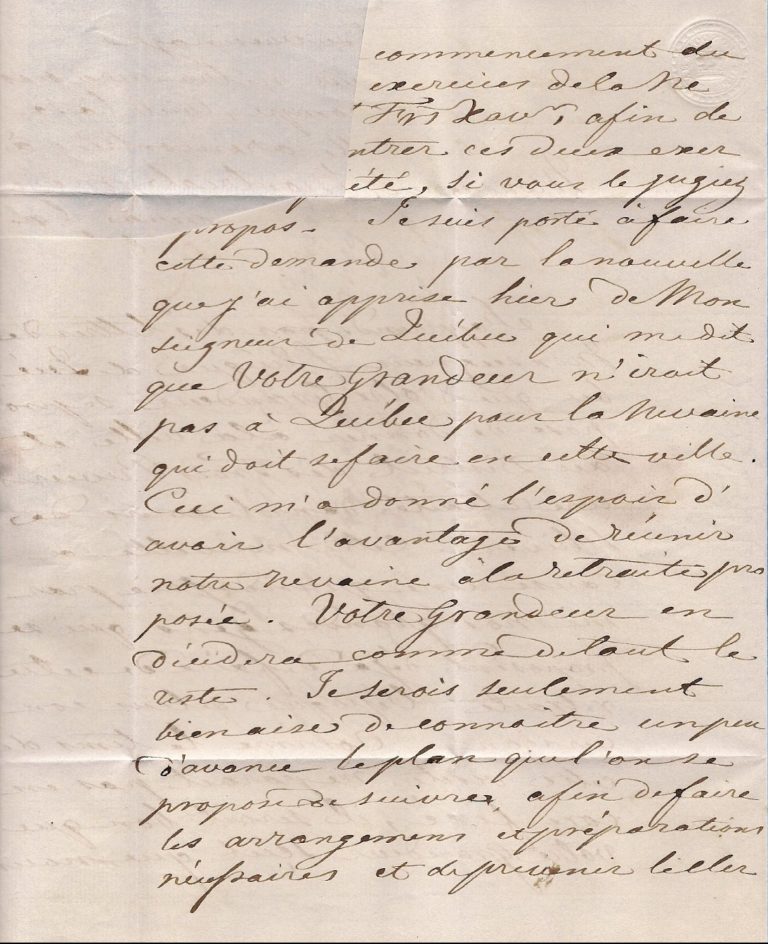 commencement du
exercices de la Ne
Frs Xavr, afin de
ntrer ces deux exer
été, si vous le jugiez
propos. Je suis porté à faire
cette demande par la nouvelle
que j'ai apprise hier de Mon
seigneur de Québec qui me dit
que Votre Grandeur n'iroit
pas à Québec pour la Nevaine
qui doit se faire en cette ville.
Ceci m'a donné l'espoir d'
avoir l'avantage de réunir
notre nevaine à la retraite pro
posée. Votre Grandeur en
décidera comme de tout le
reste. Je serois seulement
bien aise de connoitre un peu
d'avance le plan que l'on se
propose de suivre, afin de faire
les arrangemens et préparations
nécessaires et de prévenir le cler